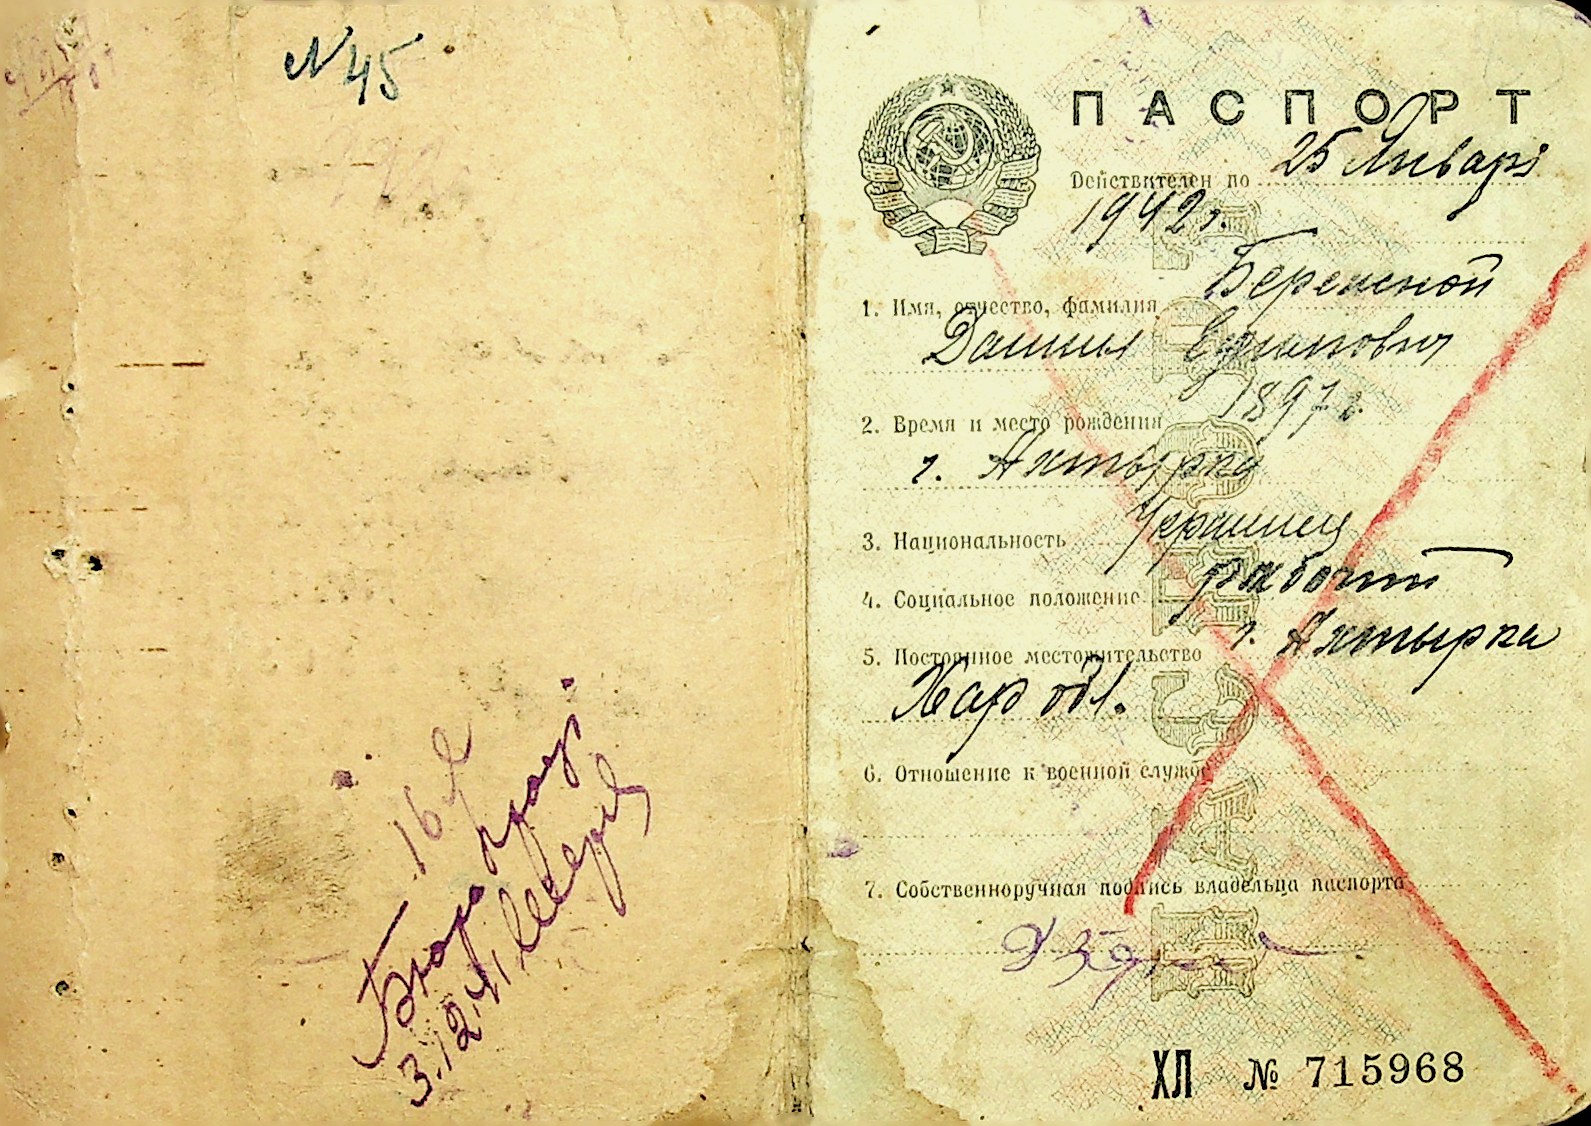 № 45
3.12.41
ПАСПОРТ
Действителен по 25 Января
1942 г.
Бережной
1. Имя, отчество, фамилия
Даниил
1897 г.
2. Время и место рождения
г. Ахтырка
3. Национальность Украинец
4. Социальное положение рабочий
5. Постоянное местожительство г. Ахтырка
Хар обл.
6. Отношение к военной службе
7. Собственноручная подпись владельца паспорта
ПАСПОРТ
ХЛ № 715968